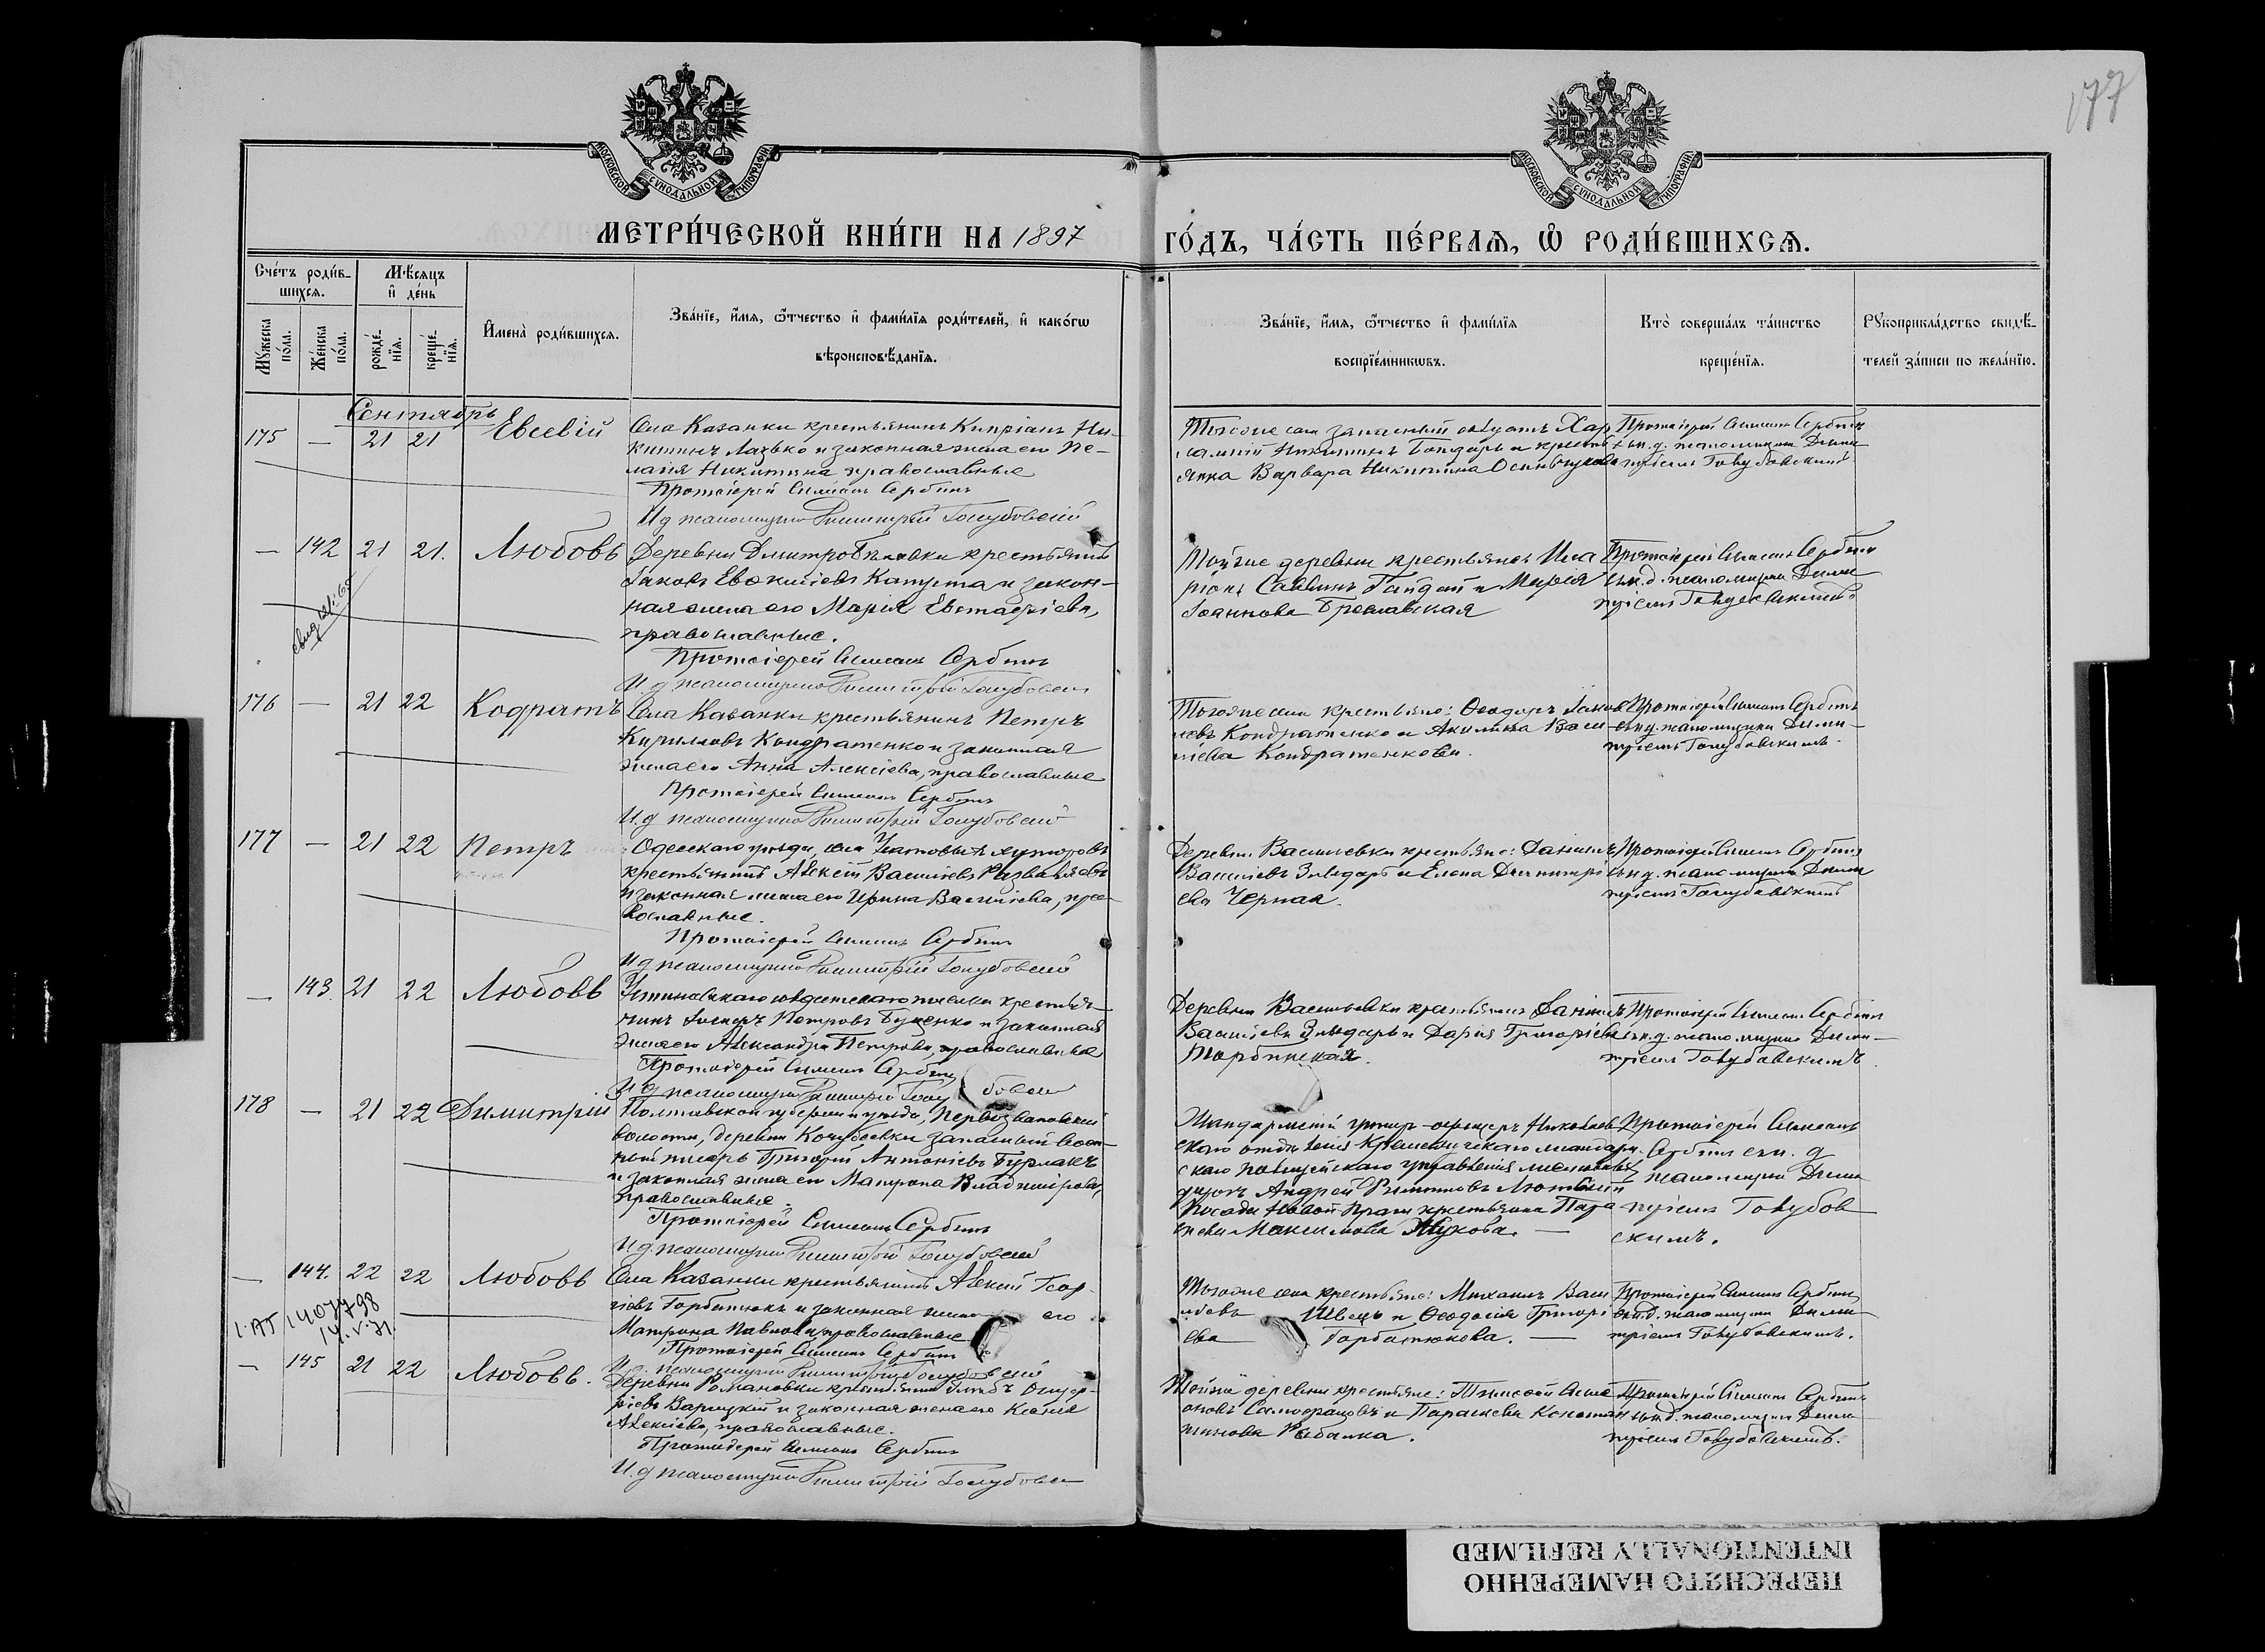 177
МОСКОВСКОЙ СѴНОДАЛЬНОЙ ТИПОГРАФІИ
МОСКОВСКОЙ СѴНОДАЛЬНОЙ ТИПОГРАФІИ
МЕТРИ́ЧЕСКОЙ КНИ́ГИ НА 1897 ГО́ДЪ, ЧА́СТЬ ПЕ́РВАѦ, Ѽ РОДИ́ВШИХСѦ.
Сче́тъ роди́вшихсѧ.
Мѣ́сяцъ и҆ де́нь
Мꙋ́жеска по́ла.
Же́нска по́ла.
рожде́нїѧ.
креще́нїѧ.
И҆мена̀ роди́вшихсѧ.
Зва́нїе, и҆́мѧ, ѻ҆́тчество и҆ фами́лїѧ роди́телей, и҆ како́гѡ
вѣроисповѣ́данїѧ.
Зва́нїе, и҆́мѧ, ѻ҆́тчество и҆ фами́лїѧ
воспрїе́мникѡвъ.
Кто̀ соверша́лъ та́инство
креще́нїѧ.
Рꙋкоприкла́дство свидѣ́телей за́писи по жела́нїю.
Сентябрь
175 — 21 21 Евсевій
Села Казанки крестьянинъ Кипріанъ Ни-
китинъ Лазько и законная жена его Пе-
лагія Никитина православные
Протоіерей Симеонъ Сербинъ
И д псаломщика Димитрій Голубовскій
Тогоже села запасный солдатъ Хар
лампій Никитинъ Бондарь и кресть
янка Варвара Никитина
Протоіерей Симеонъ Сербинъ
съ и.д. псаломщика Дими
тріемъ Голубовскимъ
— 142 21 21. Любовь
Деревни крестьянинъ
Іаковъ Капуста и закон-
ная жена его Марія Евстафіева,
православные.
Протоіерей Симеонъ Сербинъ
И. д псаломщика Димитрій Голубовскій
Тойже деревни крестьяне: Ила
ріонъ Саввинъ Гайдай и Марія
Іоаннова Бреславская
Протоіерей Симеонъ Сербинъ
съ и.д. псаломщика Дими
тріемъ Голубовскимъ
176 — 21 22 Кодратъ
Села Казанки крестьянинъ Петръ
Кирилловъ Кондратенко и законная
жена его Анна Алексіева, православные
Протоіерей Симеонъ Сербинъ
И.д псаломщика Димитрій Голубовскій
Тогоже села крестьяне: Ѳеодоръ Іаков
левъ Кондратенко и Акилина Васи
ліева Кондратенкова.
Протоіерей Симеонъ Сербинъ
съ и.д. псаломщика Дими-
тріемъ Голубовскимъ
177 — 21 22 Петръ
Одесскаго уѣзда, села хуторовъ
крестьянинъ Алексій Василіевъ
и законная жена его Ирина Василіева, пра-
вославные.
Протоіерей Симеонъ Сербинъ
И д псаломщика Димитрій Голубовскій
Деревни Васильевки крестьяне: Даніилъ
Василіевъ и Елена Димитрі
ева Черная.
Протоіерей Симеонъ Сербинъ
съ и.д. псаломщика Дими
тріемъ Голубовскимъ
— 143. 21 22 Любовь
крестья-
нинъ Петровъ Буценко и законная
жена его Александра Петрова, православные
Протоіерей Симеонъ Сербинъ
И д псаломщика Димитрій Голубовскій
Деревни Васильевки крестьяне: Даніилъ
Василіевъ и Дарія Григоріева
Протоіерей Симеонъ Сербинъ
съ и.д. псаломщика Дими-
тріемъ Голубовскимъ
178 — 21 22 Димитрій
Полтавской губерніи и уѣзда, Первозвановской
волости, деревни Кочубеевки запасный воен-
ный писарь Григорій Антоніевъ Бурлакъ
и законная жена его Матрона Владимірова,
православные
Протоіерей Симеонъ Сербинъ
И д. псаломщика Димитрій Голубовскій
Жандармскій унтеръ-офицеръ Николаев
скаго отдѣленія жандарм
скаго полицейскаго управленія
Андрей
Посада Новой Праги крестьянка Пара
скева Максимова Жукова. —
Протоіерей Симеонъ
Сербинъ съ и. д
псаломщика Дими
тріемъ Голубов
скимъ.
— 144. 22 22 Любовь
Села Казанки крестьянинъ Алексій Геор-
гіевъ Горбатюкъ и законная жена его
Матрона Павлова, православные
Протоіерей Симеонъ Сербинъ
И. д псаломщика Димитрій Голубовскій
Тогоже села крестьяне: Михаилъ Васи
ліевъ Швецъ и Ѳеодосія Григорі
ева Горбатюкова. —
Протоіерей Симеонъ Сербинъ
съ и.д. псаломщика Дими
тріемъ Голубовскимъ.
14.V.31
— 145 21 22 Любовь.
Деревни Романовки крестьянинъ
и законная жена его Ксенія
Алексіева, православные.
Протоіерей Симеонъ Сербинъ
И.д псаломщика Димитрій Голубовскій
Тойже деревни крестьяне: Тимоѳей
и Параскева Констан
тинова Рыбалка.
Протоіерей Симеонъ Сербинъ
съ и.д. псаломщика Дими
тріемъ Голубовскимъ.
ПЕРЕСНЯТО НАМЕРЕННО
INTENTIONALLY REFILMED